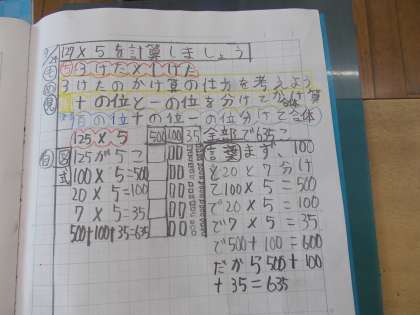 127×5を計算しましょう
3けた×1けた
3けたのかけ算の仕方を考えよう
十の位と一の位を分けて計算
百の位十の位一の位分けて合体
125×5 500 100 35 全部で635こ
図 125が5こ
式 100×5=500
20×5=100
7×5=35
500+100+35=635
言葉まず、100
と20と7分け
て100×5=500
で20×5=100
で7×5=35
で500+100=600
だから500+100
+35=635